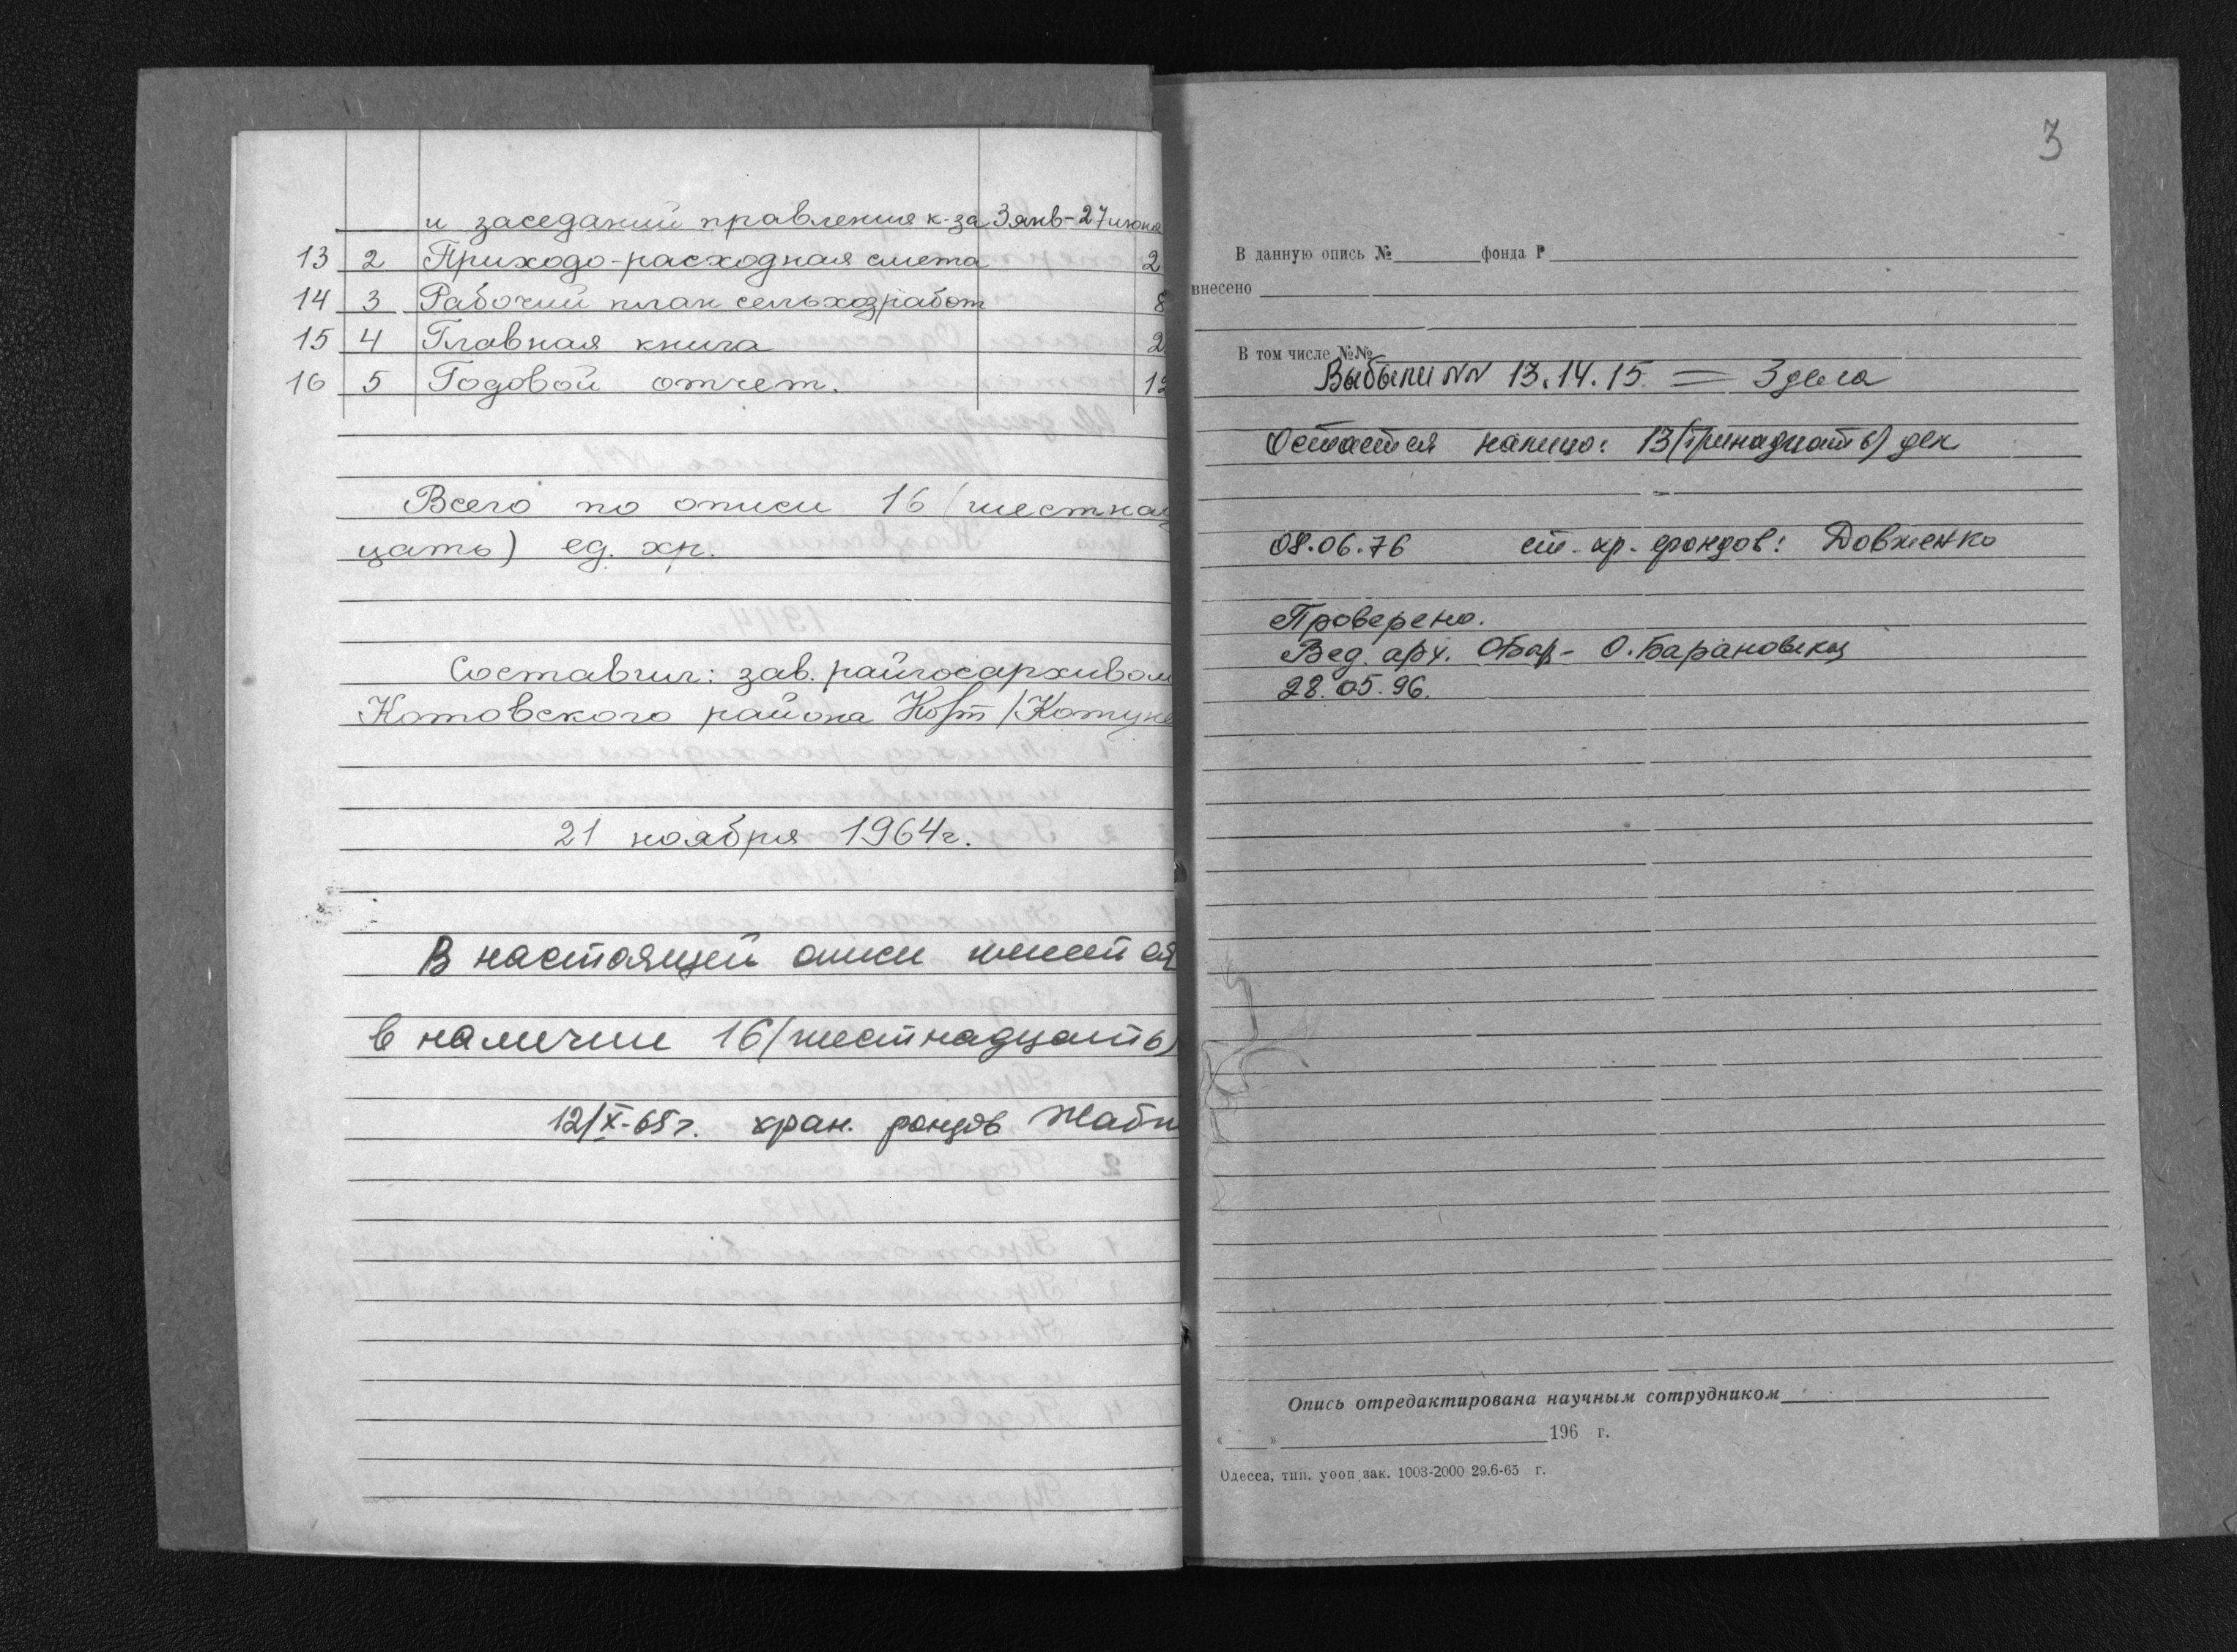 и заседаний правления к-за 3 янв-27 июня
13 2 Приходо-расходная смета 2
14 3 Рабочий план сельхозработ 8
15 4 Главная книга 2
16 5 Годовой отчет. 12
Всего по описи 16 (шестнад
цать) ед. хр.
Составил: зав. райгосархивом
Котовского района /Котуне
21 ноября 1964г.
В настоящей описи имеется
в наличии 16 (шестнадцать)
12/X-65г. хран. фондов Жаби
3
В данную опись № фонда Р
внесено
В том числе №№
Выбыли NN 13.14.15 = 3 дела
Остается налицо: 13 (тринадцать) дел
08.06.76 ст. хр. фондов: Довженко
Проверено.
Вед. арх. О. Барановская
28.05.96.
Опись отредактирована научным сотрудником
« » 196 г.
Одесса, тип. уооп зак. 1003-2000 29.6-65 г.